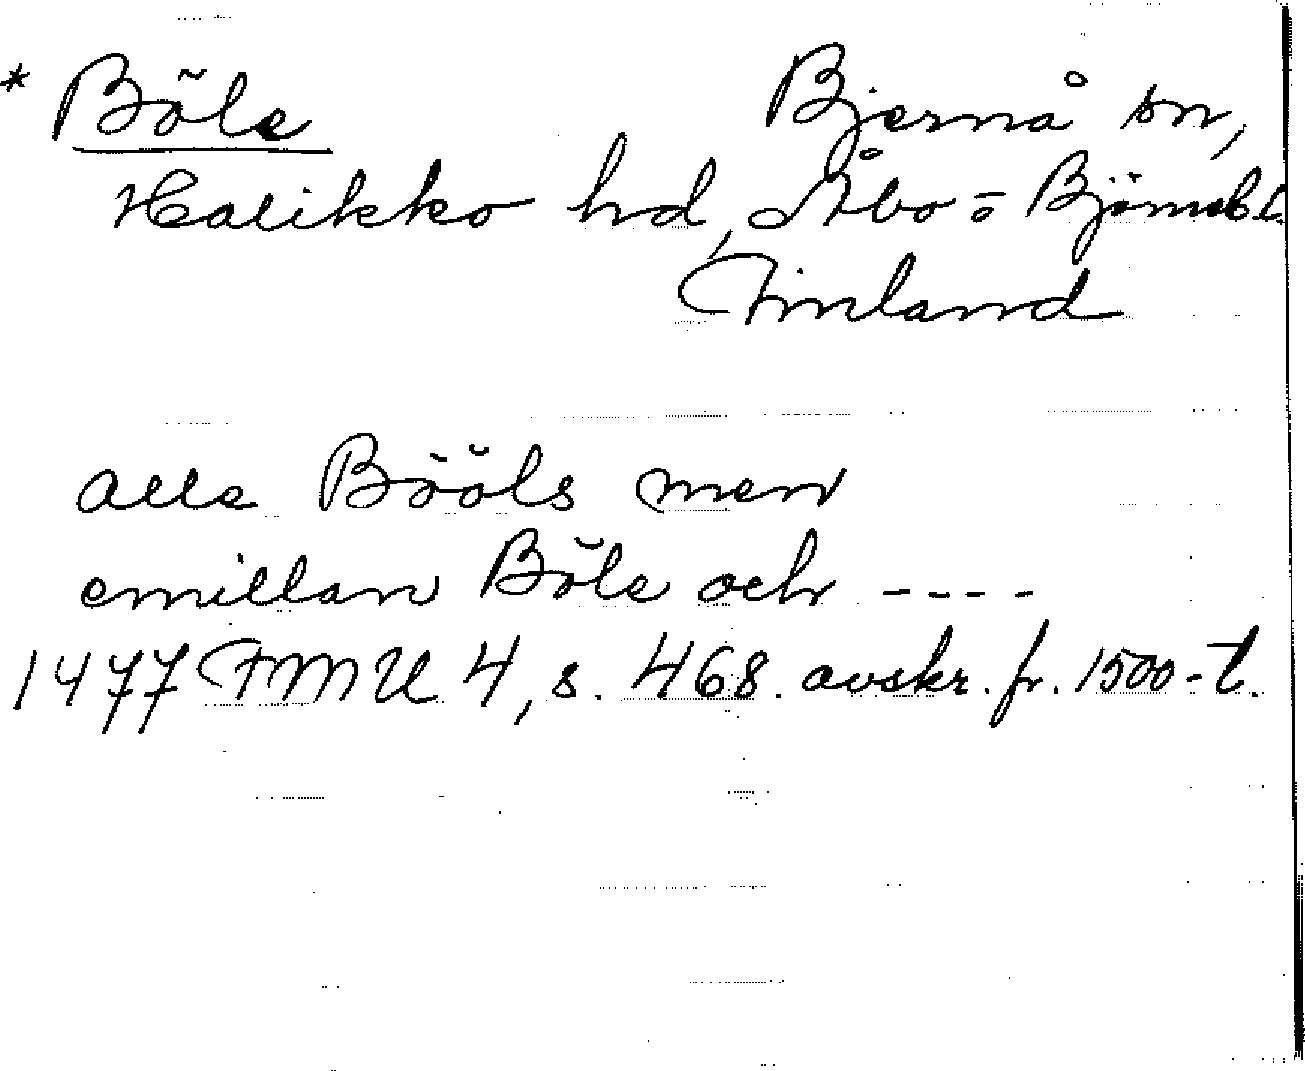 * Böle Bjernå sn,
Halikko hd, Åbo o Björneb l.
Finland
alle Bööls men
emillan Böle och ----
1477 FMU 4, s. 468. avskr. fr. 1500-t.